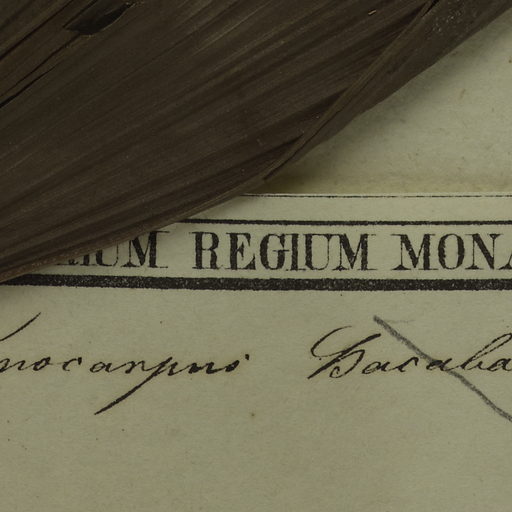 IUM REGIUM MONA
nocarpus Bacaba